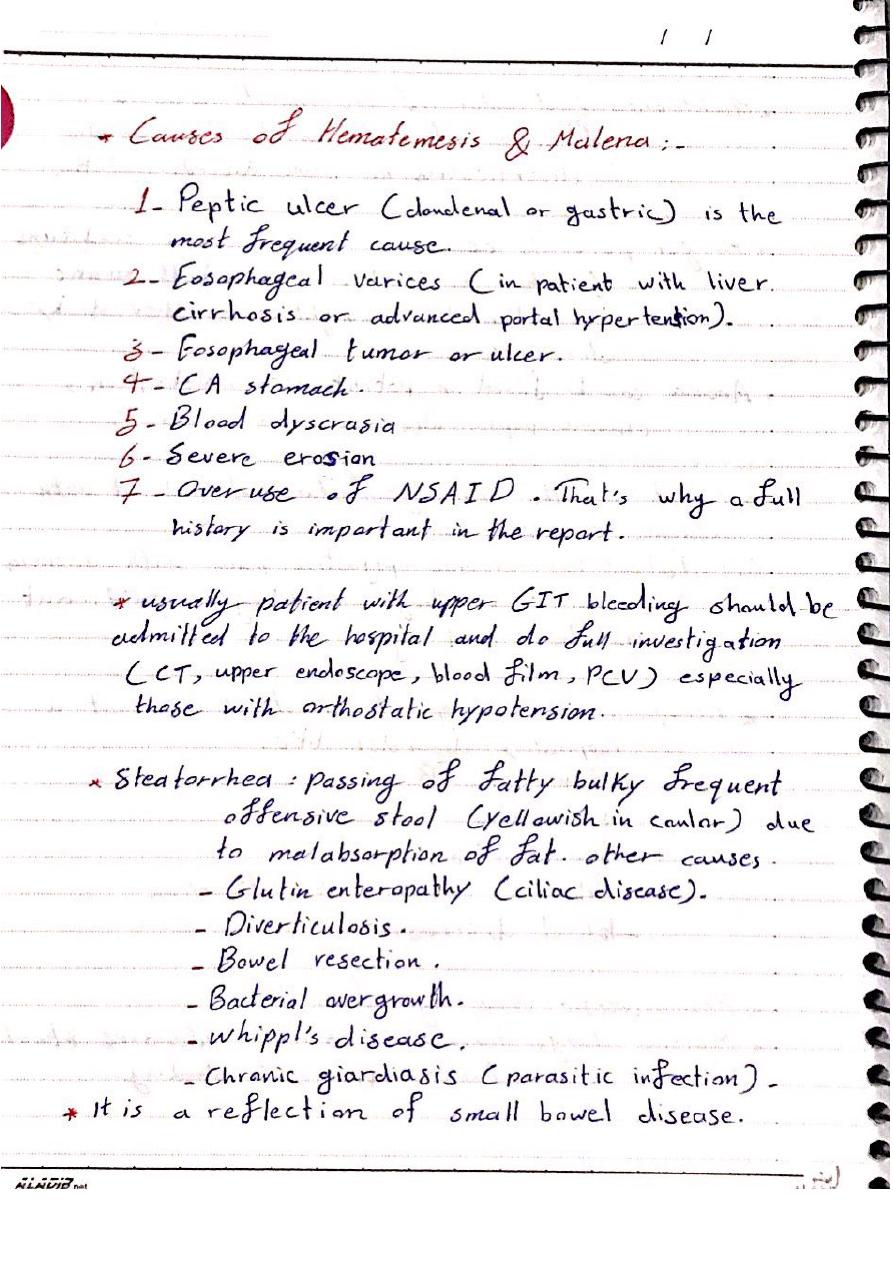 / /
* Causes of Hematemesis & Malena :-
1- Peptic ulcer (doudenal or gastric) is the
most frequent cause.
2- Eosophageal varices (in patient with liver
cirrhosis or advanced portal hypertension).
3- Eosophageal tumor or ulcer.
4- CA stomach.
5- Blood dyscrasia
6- Severe erosion
7- Over use of NSAID. That's why a full
history is important in the report.
* usually patient with upper GIT bleeding should be
admitted to the hospital and do full investigation
(CT, upper endoscope, blood film, PCV) especially
those with orthostatic hypotension.
* Steatorrhea : passing of fatty bulky frequent
offensive stool (yellowish in coulor) due
to malabsorption of fat. other causes.
- Glutin enteropathy (ciliac disease).
- Diverticulosis.
- Bowel resection.
- Bacterial overgrowth.
- whippl's disease.
- Chronic giardiasis (parasitic infection) -
* It is a reflection of small bowel disease.
ALADIB.net